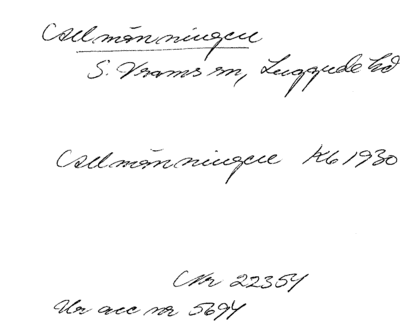 Allmänningen
S. Vrams sn, Luggude hd
Allmänningen Kb 1930
Nr 22354
Ur acc nr 5694